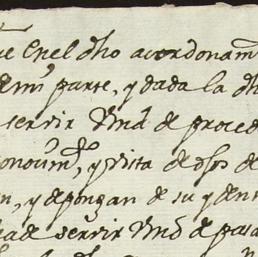 e Enel dho acordonam
demi parte, y dada la dh
servir Vmd de proced
onocim.to, y vista de dhos de
n, y depongan de su y den
ade servir Vmd de pasa